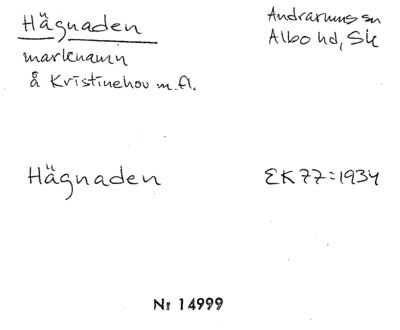 Hägnaden
Andrarums sn
Albo hd, Sk
marknamn
å Kristinehov m.fl.
Hägnaden
EK 77:1934
Nr 14999